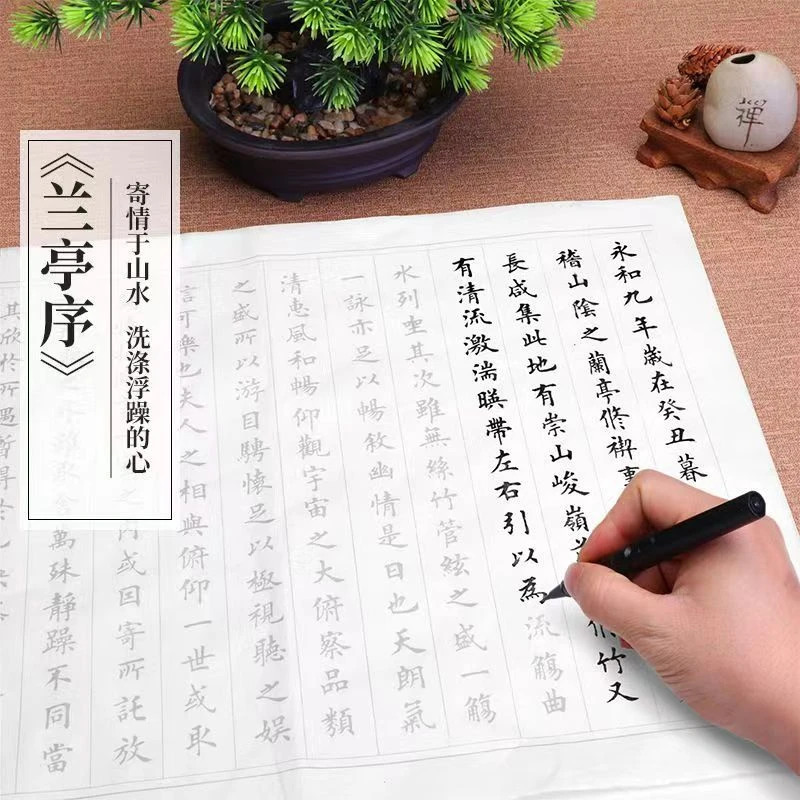 《兰亭序》
寄情于山水 洗涤浮躁的心
禅
永和九年歲在癸丑暮
稽山陰之蘭亭脩禊事
長咸集此地有崇山峻嶺茂脩竹又
有清流激湍暎帶左右引以為流觴曲
水列坐其次雖無絲竹管絃之盛一觴
一詠亦足以暢敘幽情是日也天朗氣
清惠風和暢仰觀宇宙之大俯察品類
之盛所以游目騁懷足以極視聽之娛
言可樂也夫人之相與俯仰一世或取
之內或因寄所託放
舍萬殊靜躁不同當
其欣於所遇暫得於